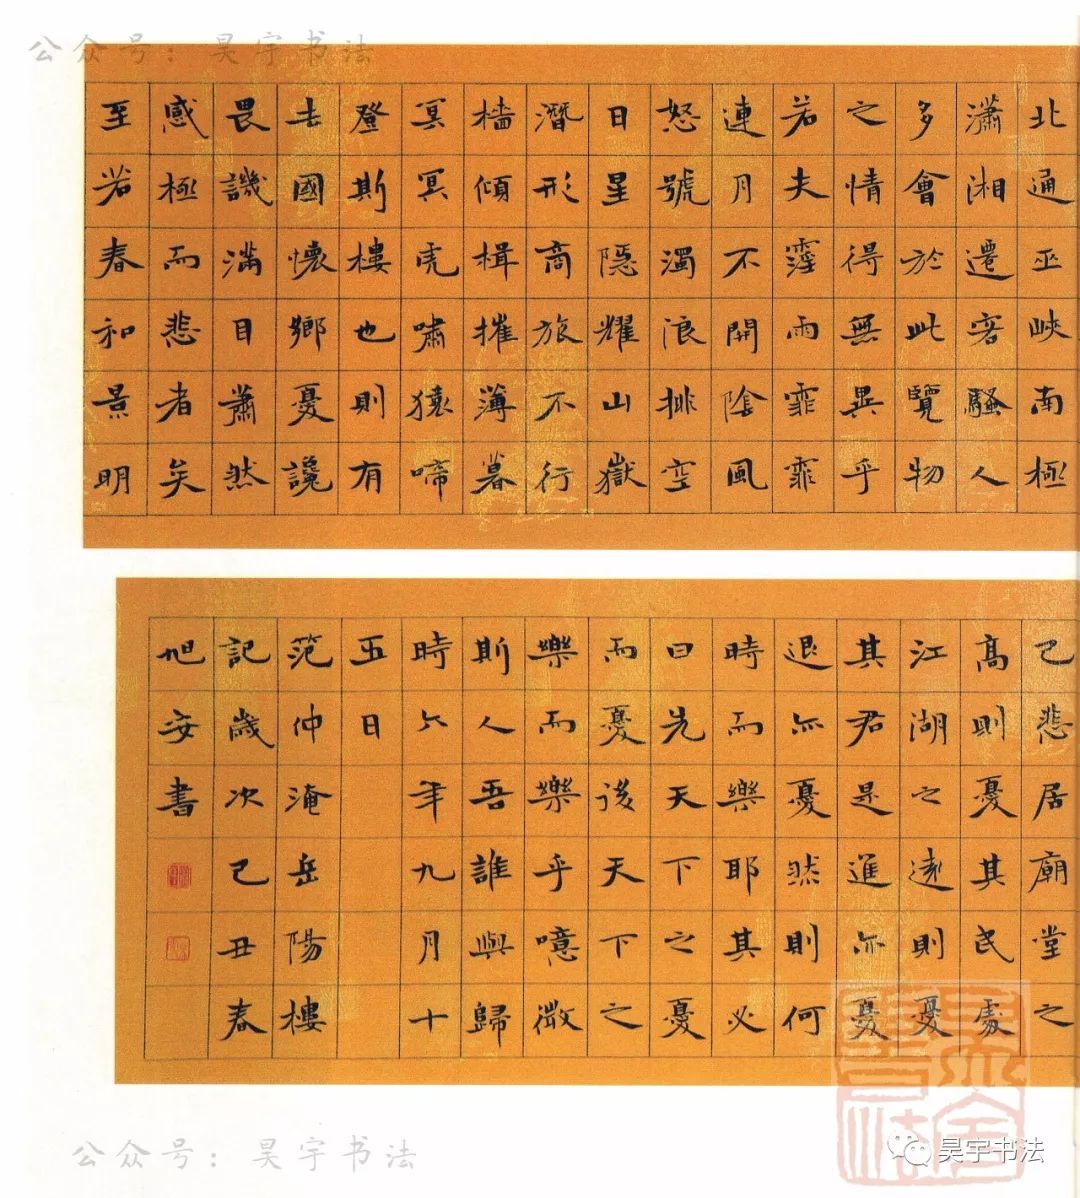 公众号：昊宇书法
北通巫峽南極
瀟湘遷客騷人
多會於此覽物
之情得無異乎
若夫霪雨霏霏
連月不開陰風
怒號濁浪排空
日星隱耀山嶽
潛形商旅不行
檣傾楫摧薄暮
冥冥虎嘯猿啼
登斯樓也則有
去國懷鄉憂讒
畏譏滿目蕭然
感極而悲者矣
至若春和景明
己悲居廟堂之
高則憂其民處
江湖之遠則憂
其君是進亦憂
退亦憂然則何
時而樂耶其必
曰先天下之憂
而憂後天下之
樂而樂乎噫微
斯人吾誰與歸
時六年九月十
五日
范仲淹岳陽樓
記歲次己丑春
旭安書
昊宇書法
公众号：昊宇书法
昊宇书法